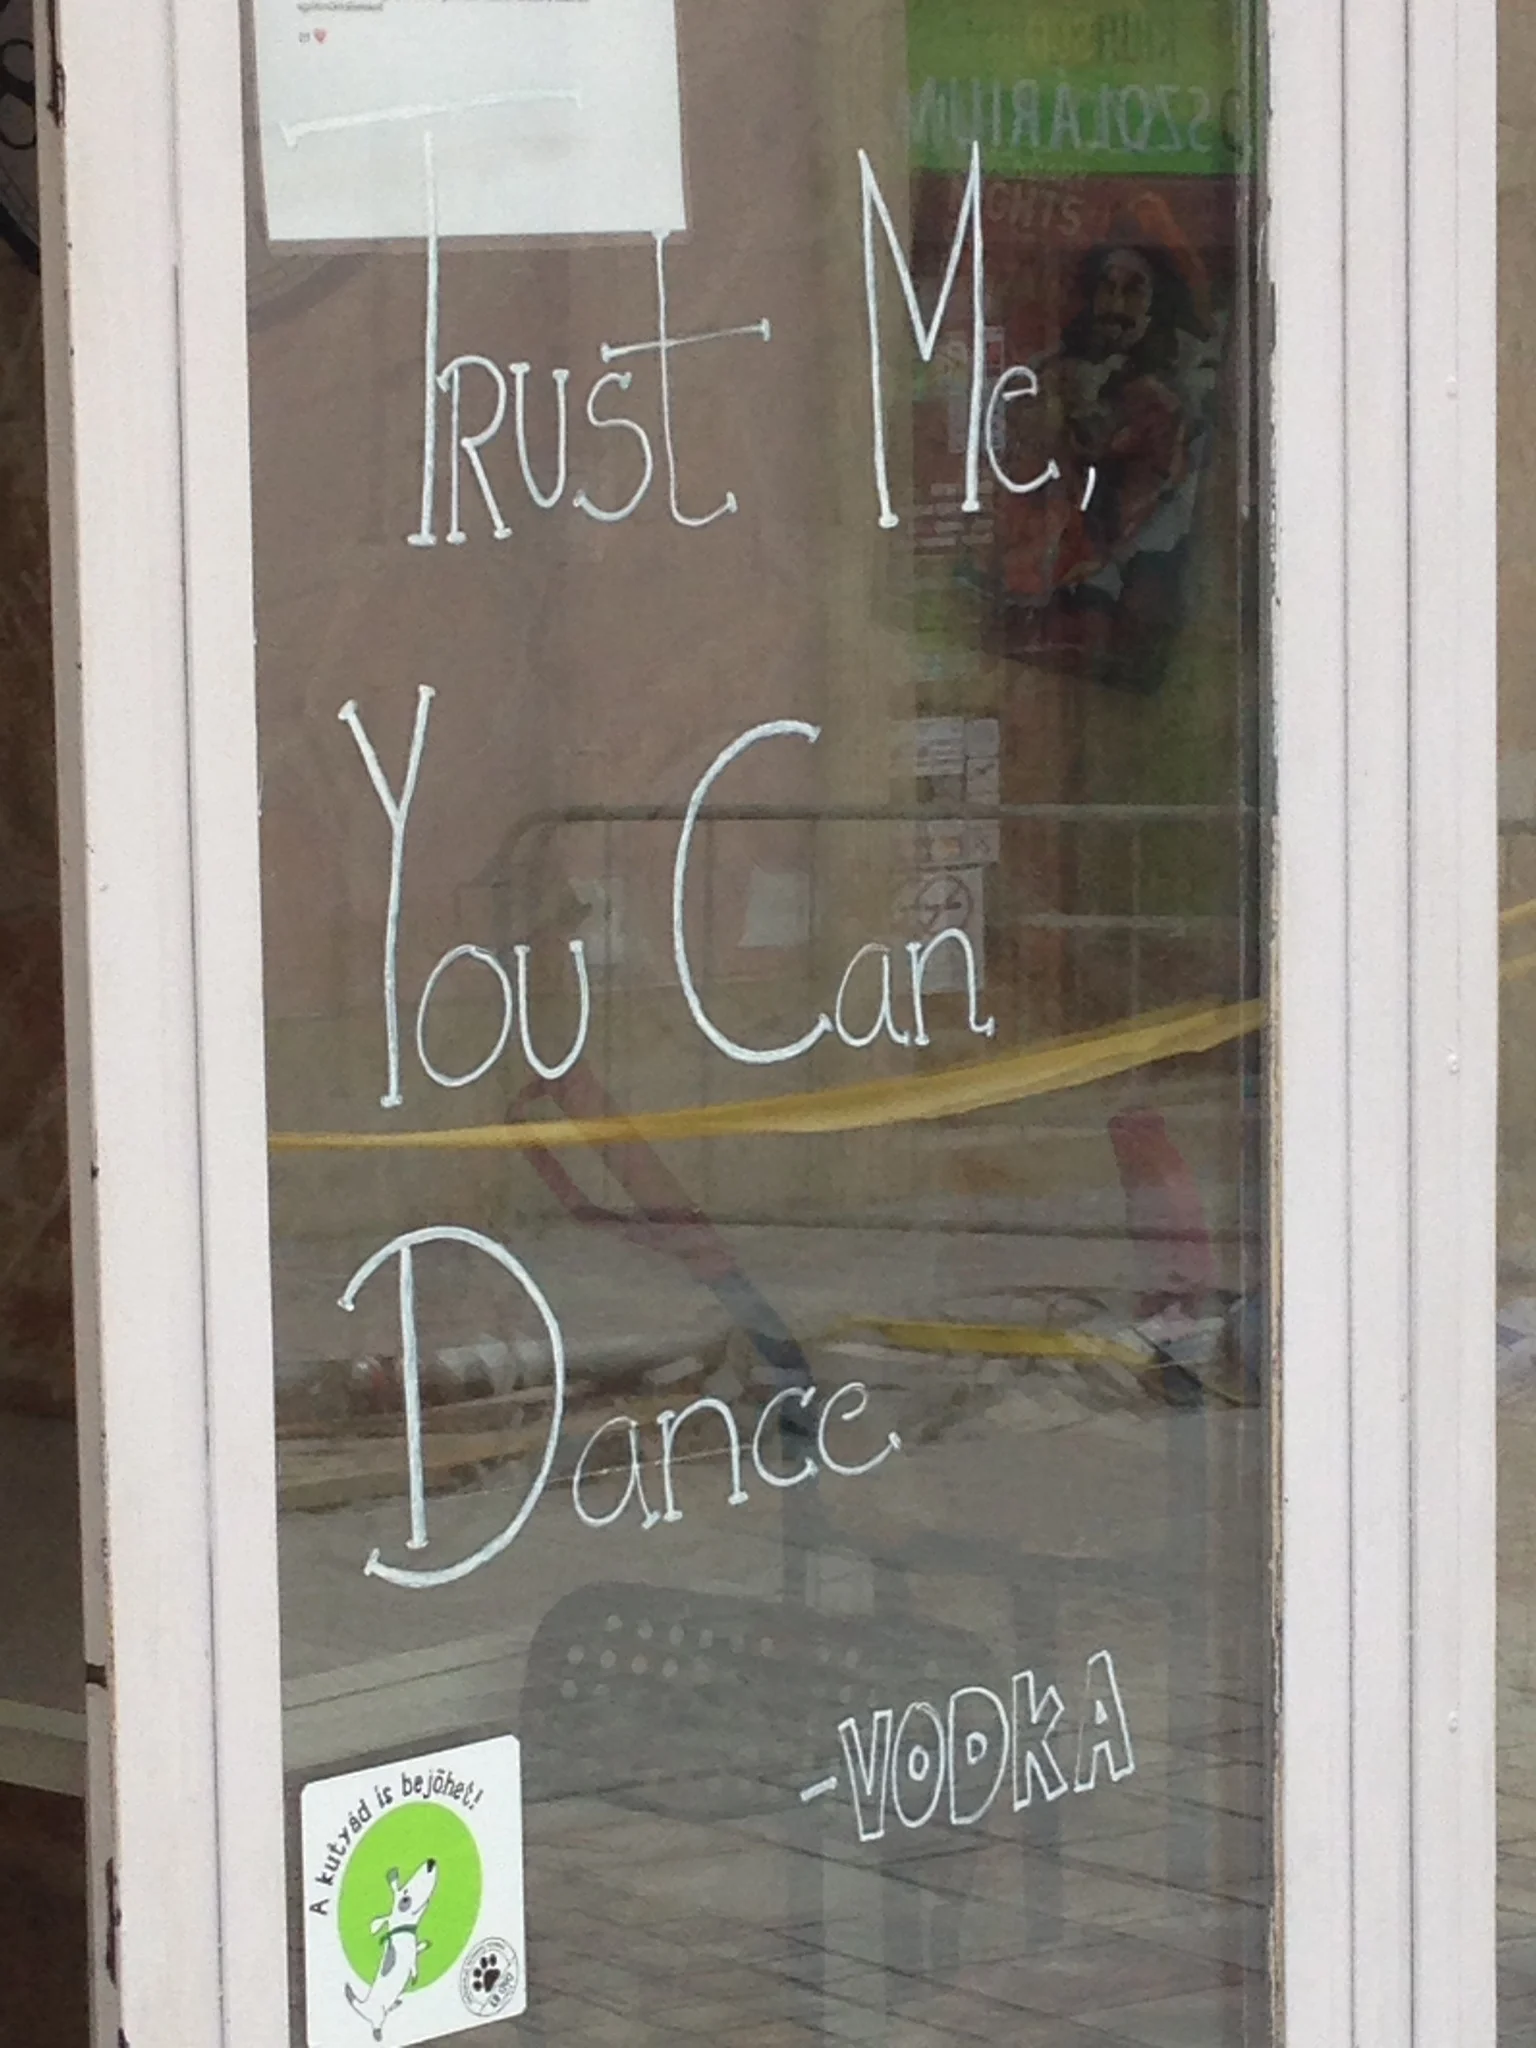 SZOLÁRIUM
Trust Me,
You Can
Dance
-VODKA
A kutyád is bejöhet!